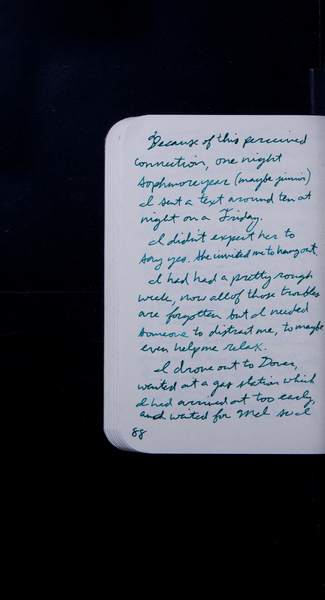 Because of this perceived
connection, one night
sophmore year (maybe junior)
I sent a text around ten at
night on a Friday.
I didn't expect her to
say yes. She invited me to hang out.
I had had a pretty rough
week, now all of those troubles
are forgotten but I needed
someone to distract me, to maybe
even help me relax.
I drove out to Dover,
waited at a gas station which
I had arrived at too early,
and waited for Mel so I
88